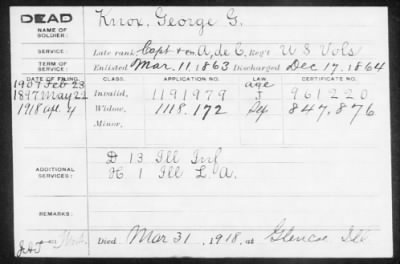 DEAD
NAME OF SOLDIER:
Knox, George G.
SERVICE:
Late rank, Capt + A, de C, Reg't U S Vols
TERM OF SERVICE:
Enlisted Mar. 11, 1863 Discharged Dec 17, 1864
DATE OF FILING. CLASS. APPLICATION NO. LAW. CERTIFICATE NO.
1907 Feb 23 age
1897 May 24 Invalid, 1191979 961220
1918 apl 4 Widow, 1118.172 847,876
Minor,
ADDITIONAL SERVICES:
D 13 Ill Inf
H 1 Ill L A.
REMARKS:
Died Mar 31, 1918, at Glencoe Ill